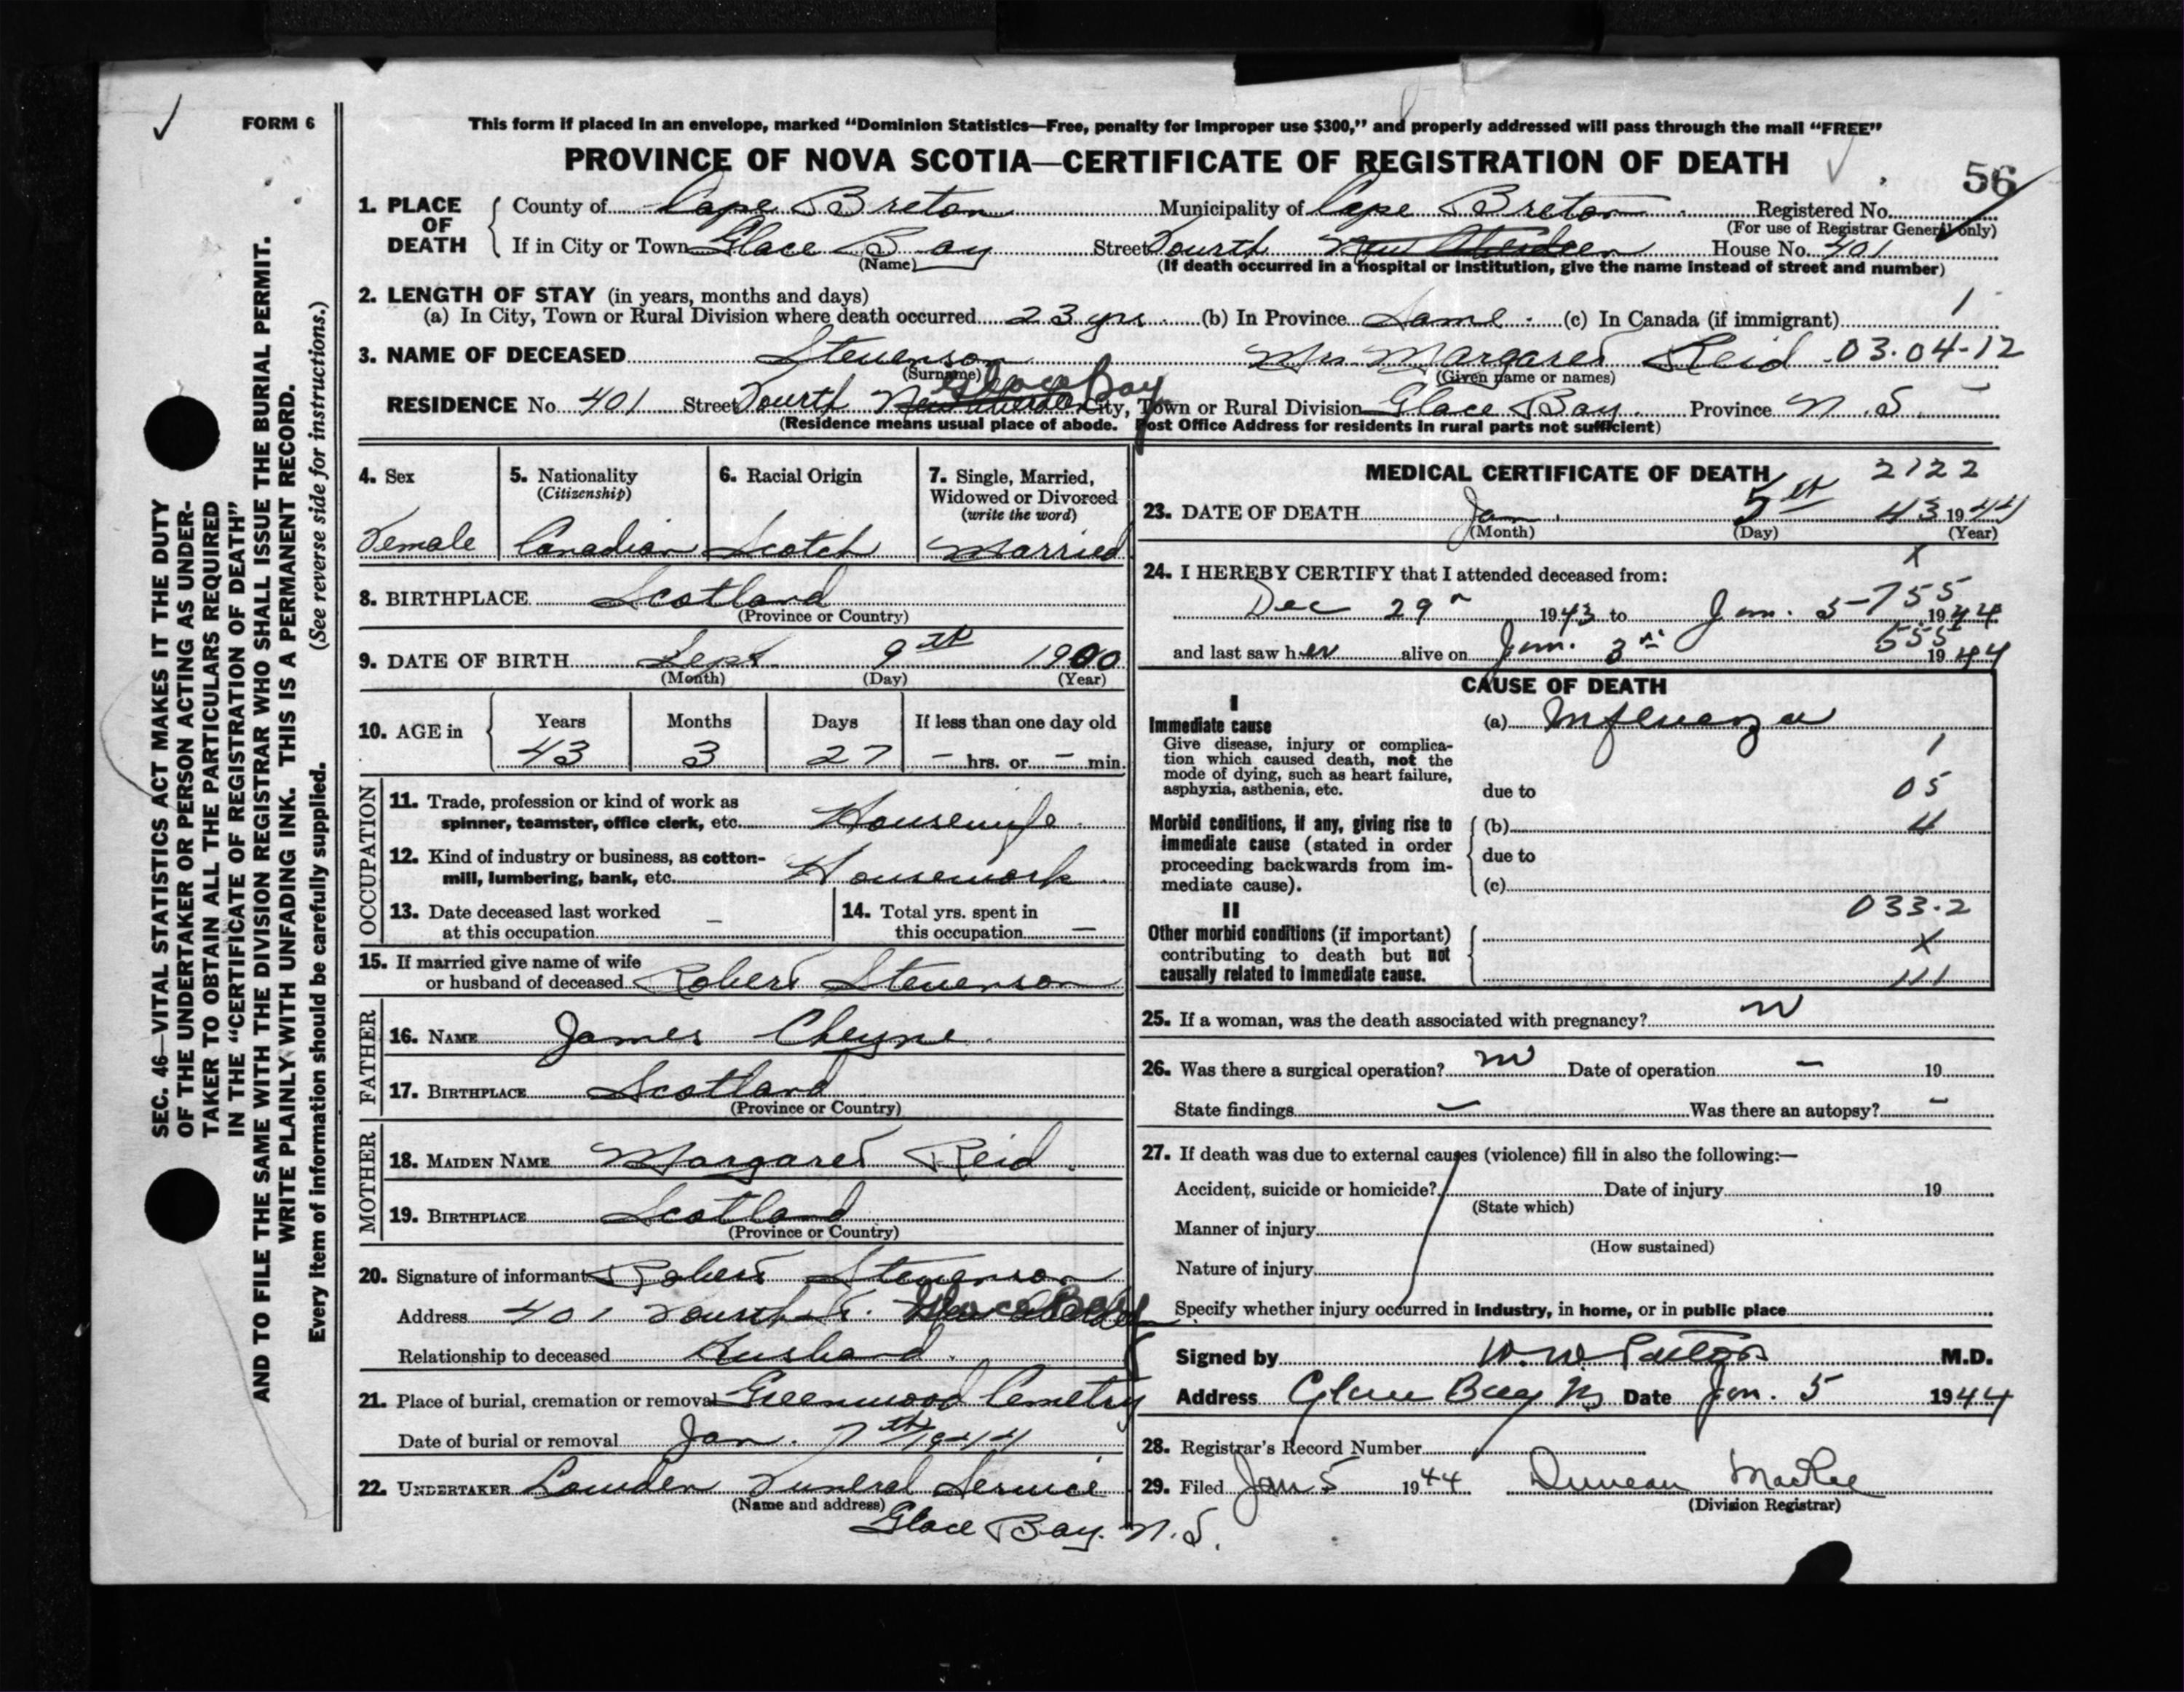 FORM 6
This form if placed in an envelope, marked “Dominion Statistics—Free, penalty for improper use $300,” and properly addressed will pass through the mail “FREE”
PROVINCE OF NOVA SCOTIA—CERTIFICATE OF REGISTRATION OF DEATH
56
SEC. 46—VITAL STATISTICS ACT MAKES IT THE DUTY
OF THE UNDERTAKER OR PERSON ACTING AS UNDER-
TAKER TO OBTAIN ALL THE PARTICULARS REQUIRED
IN THE “CERTIFICATE OF REGISTRATION OF DEATH”
AND TO FILE THE SAME WITH THE DIVISION REGISTRAR WHO SHALL ISSUE THE BURIAL PERMIT.
WRITE PLAINLY WITH UNFADING INK. THIS IS A PERMANENT RECORD.
Every item of information should be carefully supplied. (See reverse side for instructions.)
1. PLACE OF DEATH
County of Cape Breton Municipality of Cape Breton Registered No.
(For use of Registrar General only)
If in City or Town Glace Bay Street Fourth New Aberdeen House No. 401
(Name) (If death occurred in a hospital or institution, give the name instead of street and number)
2. LENGTH OF STAY (in years, months and days)
(a) In City, Town or Rural Division where death occurred 23 yrs. (b) In Province Same (c) In Canada (if immigrant) 1
3. NAME OF DECEASED Stevenson Mrs Margaret Reid 03.04-12
(Surname) (Given name or names)
Glace Bay
RESIDENCE No. 401 Street Fourth New Aberdeen City, Town or Rural Division Glace Bay. Province N.S.
(Residence means usual place of abode. Post Office Address for residents in rural parts not sufficient)
4. Sex
Female
5. Nationality
(Citizenship)
Canadian
6. Racial Origin
Scotch
7. Single, Married,
Widowed or Divorced
(write the word)
Married
8. BIRTHPLACE Scotland
(Province or Country)
9. DATE OF BIRTH Sept. 9th 1900
(Month) (Day) (Year)
10. AGE in
Years Months Days If less than one day old
43 3 27 – hrs. or – min.
OCCUPATION
11. Trade, profession or kind of work as
spinner, teamster, office clerk, etc. Housewife
12. Kind of industry or business, as cotton-
mill, lumbering, bank, etc. Housework
13. Date deceased last worked
at this occupation –
14. Total yrs. spent in
this occupation –
15. If married give name of wife
or husband of deceased Robert Stevenson
FATHER
16. NAME James Cheyne.
17. BIRTHPLACE Scotland
(Province or Country)
MOTHER
18. MAIDEN NAME Margaret Reid.
19. BIRTHPLACE Scotland
(Province or Country)
20. Signature of informant Robert Stevenson
Address 401 Fourth St. Glace Bay
Relationship to deceased Husband.
21. Place of burial, cremation or removal Greenwood Cemetry
Date of burial or removal Jan. 7th 1944
22. UNDERTAKER Lowden Funeral Service
(Name and address)
Glace Bay. N.S.
MEDICAL CERTIFICATE OF DEATH 2122
23. DATE OF DEATH Jan. 5th 43 1944
(Month) (Day) (Year)
X
24. I HEREBY CERTIFY that I attended deceased from:
755
Dec 29 1943 to Jan. 5 1944
555
and last saw her alive on Jan. 3rd 1944
CAUSE OF DEATH
I
Immediate cause
Give disease, injury or complica-
tion which caused death, not the
mode of dying, such as heart failure,
asphyxia, asthenia, etc.
(a) Influenza
1
due to 05
Morbid conditions, if any, giving rise to
immediate cause (stated in order
proceeding backwards from im-
mediate cause).
(b) 4
due to
(c)
033.2
II
Other morbid conditions (if important)
contributing to death but not
causally related to immediate cause.
X
111
25. If a woman, was the death associated with pregnancy? no
26. Was there a surgical operation? no Date of operation – 19
State findings – Was there an autopsy? –
27. If death was due to external causes (violence) fill in also the following:—
Accident, suicide or homicide? Date of injury 19
(State which)
Manner of injury
(How sustained)
Nature of injury
Specify whether injury occurred in industry, in home, or in public place
Signed by W. W. Patton M.D.
Address Glace Bay NS Date Jan. 5 1944
28. Registrar's Record Number
29. Filed Jan 5 1944 Duncan MacRae
(Division Registrar)